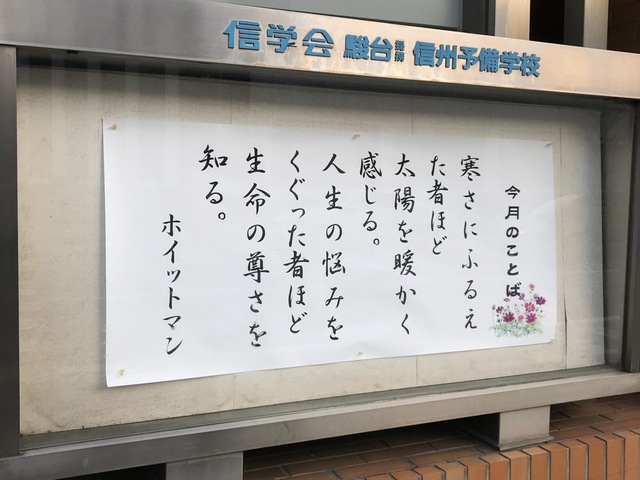 信学会 駿台提携 信州予備学校
今月のことば
寒さにふるえ
た者ほど
太陽を暖かく
感じる。
人生の悩みを
くぐった者ほど
生命の尊さを
知る。
ホイットマン